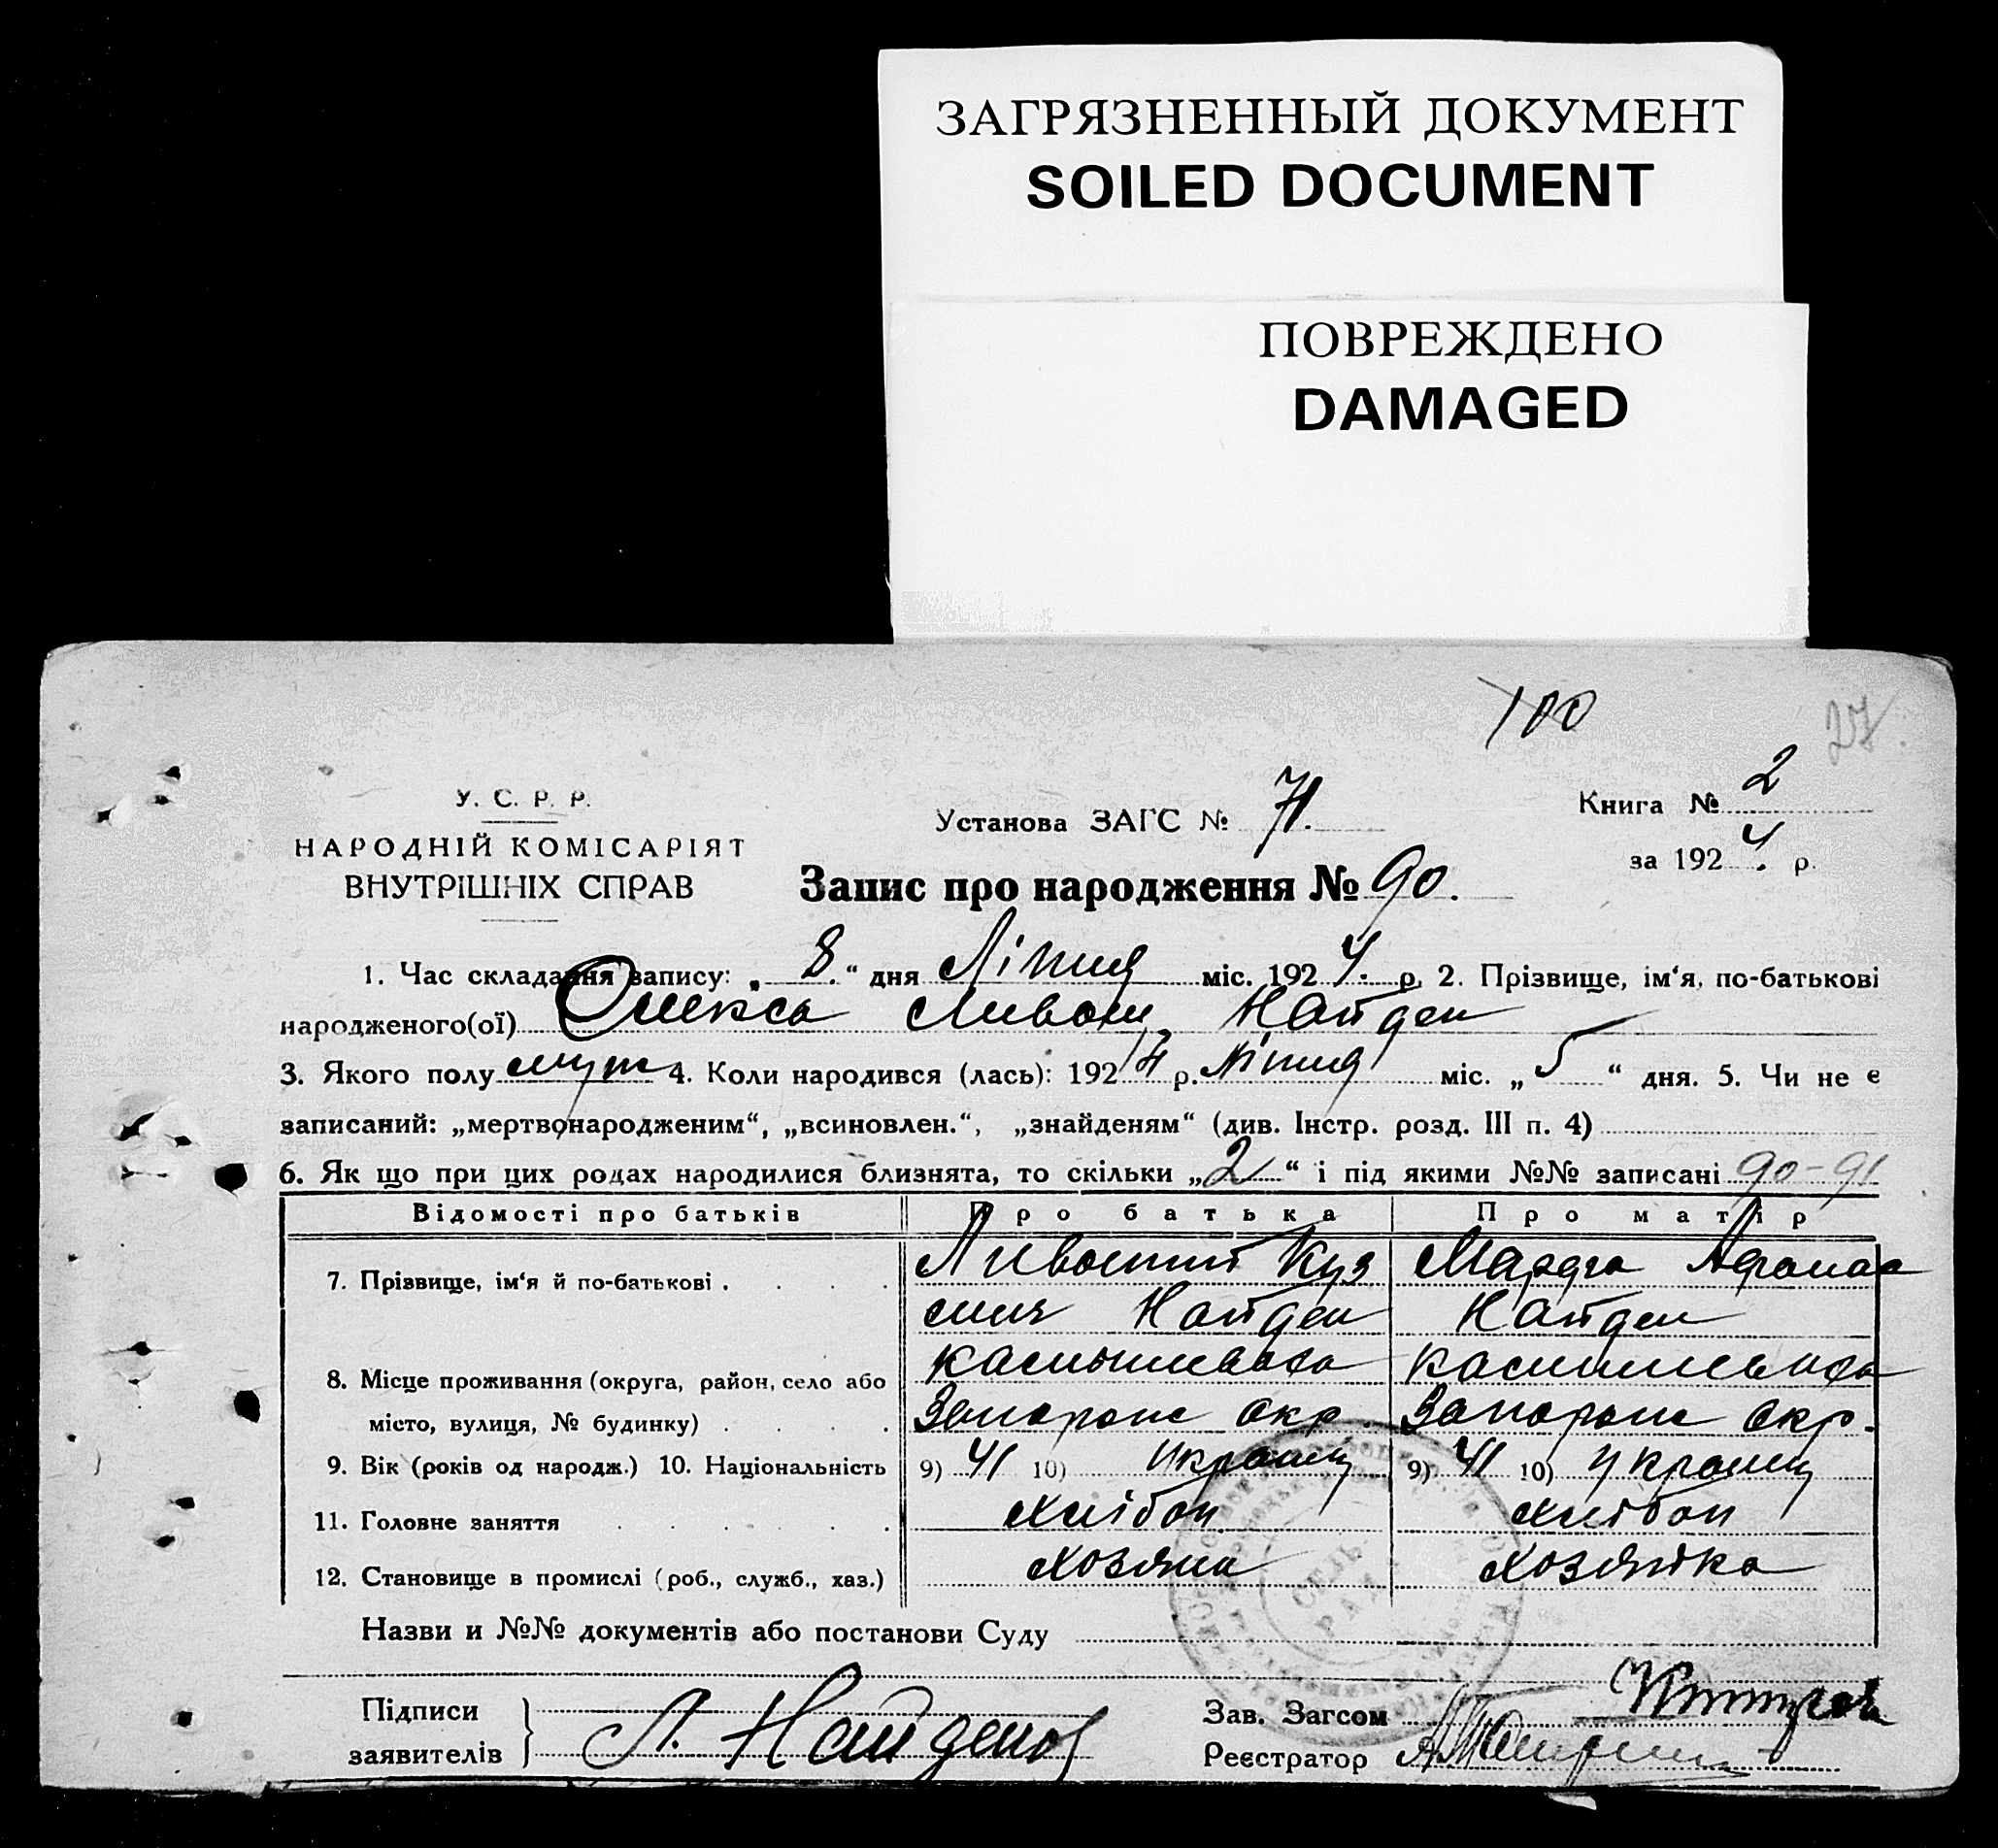 ЗАГРЯЗНЕННЫЙ ДОКУМЕНТ
SOILED DOCUMENT
ПОВРЕЖДЕНО
DAMAGED
100
27.
У. С. Р. Р.
НАРОДНІЙ КОМІСАРІЯТ
ВНУТРІШНІХ СПРАВ
Установа ЗАГС № 71.
Книга № 2
за 1924. р.
Запис про народження № 90.
1. Час складання запису: „ 8. “ дня Ліпня міс. 1924. р. 2. Прізвище, ім‘я, по-батькові
народженого(ої) Олекса Найден
3. Якого полу муж 4. Коли народився (лась): 1924 р. Ліпня міс. „ 5 “ дня. 5. Чи не є
записаний: „мертвонародженим“, „всиновлен.“, „знайденям“ (див. Інстр. розд. III п. 4)
6. Як що при цих родах народилися близнята, то скільки „2“ і під якими №№ записані 90-91
Відомості про батьків Про батька Про матір
7. Прізвище, ім‘я й по-батькові . . . . Найден Найден
8. Місце проживання (округа, район, село або місто, вулиця, № будинку) . . . . Камышеваха Запорож Окр. Камишеваха Запорож Окр.
9. Вік (років од народж.) 10. Національність 9) 41 10) Украінц 9) 41 10) Украінц
11. Головне заняття . . . . . . Хлібоп Хлібоп
12. Становище в промислі (роб., служб., хаз.) Хозяин Хозяйка
Назви и №№ документів або постанови Суду
СЕЛЬ-
РАДА
Підписи
заявителів } Л. Найденов
Зав. Загсом
Реєстратор